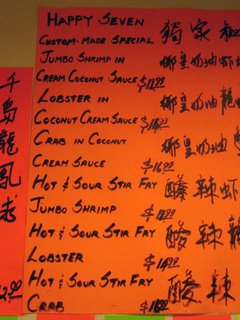 HAPPY SEVEN
獨家
CUSTOM-MADE SPECIAL
JUMBO SHRIMP IN
椰皇奶油蝦
CREAM COCONUT SAUCE
LOBSTER IN
椰皇奶油龍
COCONUT CREAM SAUCE
CRAB IN COCONUT
椰皇奶油
CREAM SAUCE $16.00
HOT & SOUR STIR FRY
酸辣蝦
JUMBO SHRIMP
HOT & SOUR STIR FRY
酸辣龍
LOBSTER
HOT & SOUR STIR FRY
酸辣
CRAB
千島龍